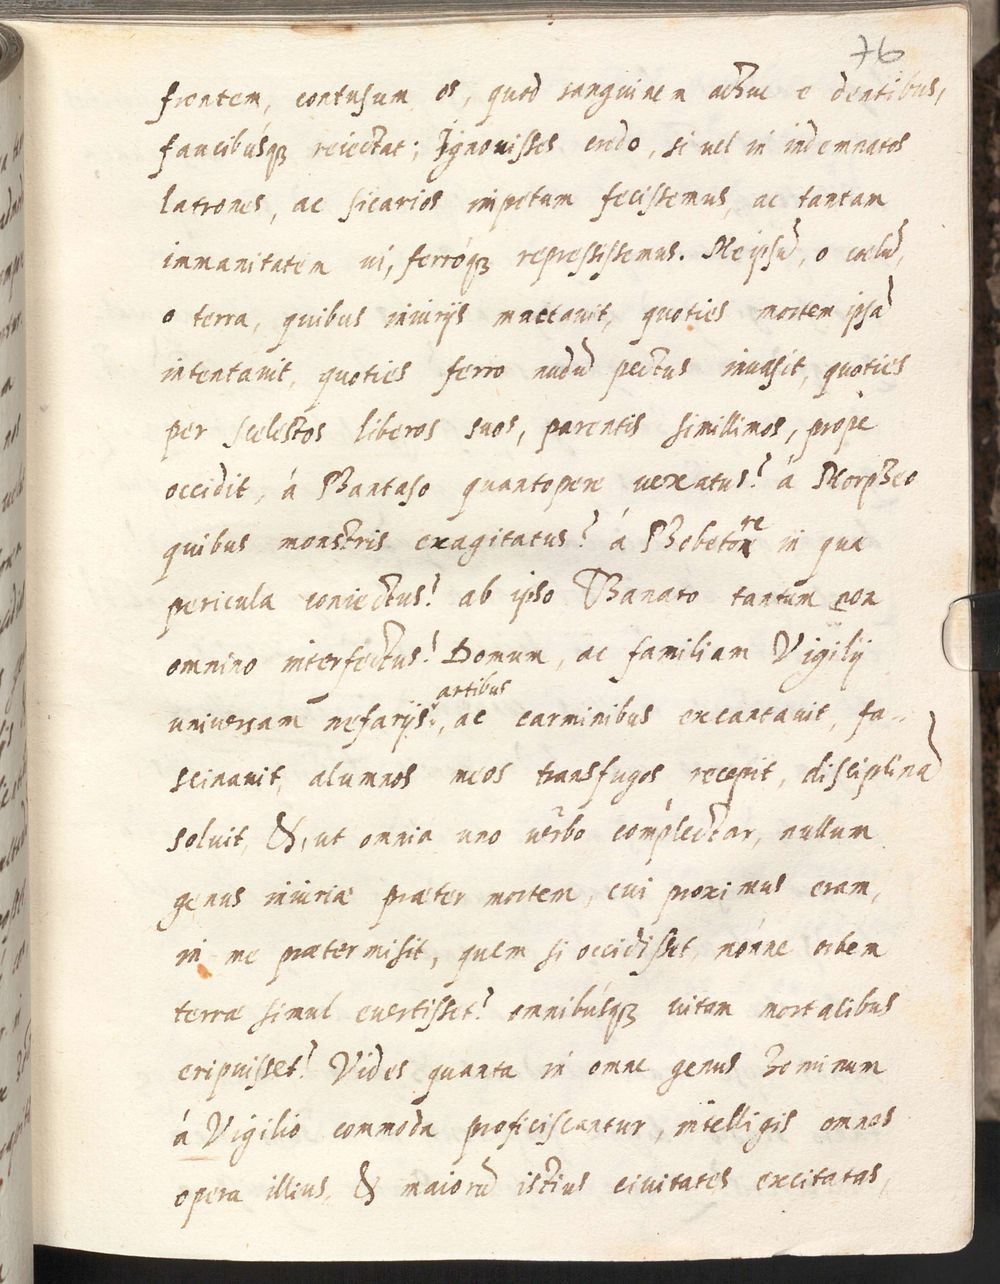 76
frontem, contusum os, quod sanguinem adhuc e dentibus,
faucibúsq; reiectat; Ignovisses credo, si vel in indemnatos
latrones, ac sicarios impetum fecissemus, ac tantam
immanitatem vi, ferróq; repressissemus. Me ipsũ, o cœlũ,
o terra, quibus iniurijs mactavit, quoties mortem ipsã
intentavit, quoties ferro nudũ pectus invasit, quoties
per scelestos liberos suos, parentis simillimos, prope
occidit, á Phantaso quantopere vexatus! á Morpheo
quibus monstris exagitatus! á Phobetore in qua
pericula coniectus! ab ipso Thanato tantum non
omnino interfectus! Domum, ac familiam Vigilij
artibus
universam nefarijs, ac carminibus excantavit, fa-
scinavit, alumnos meos transfugos recepit, disciplinã
solvit, &, ut omnia uno verbo complectar, nullum
genus iniuriæ præter mortem, cui proximus eram,
in me prætermisit, quem si occidisset, nónne orbem
terræ simul evertisset! omnibúsq; vitam mortalibus
eripuisset! Vides quanta in omne genus hominum
á Vigilio commoda proficiscantur, intelligis omnes
opera illius, & maiorũ istius civitates excitatas,